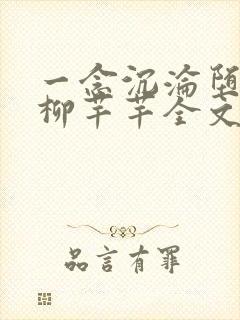 一念沉沦堕
柳芊芊全文
品言有罪